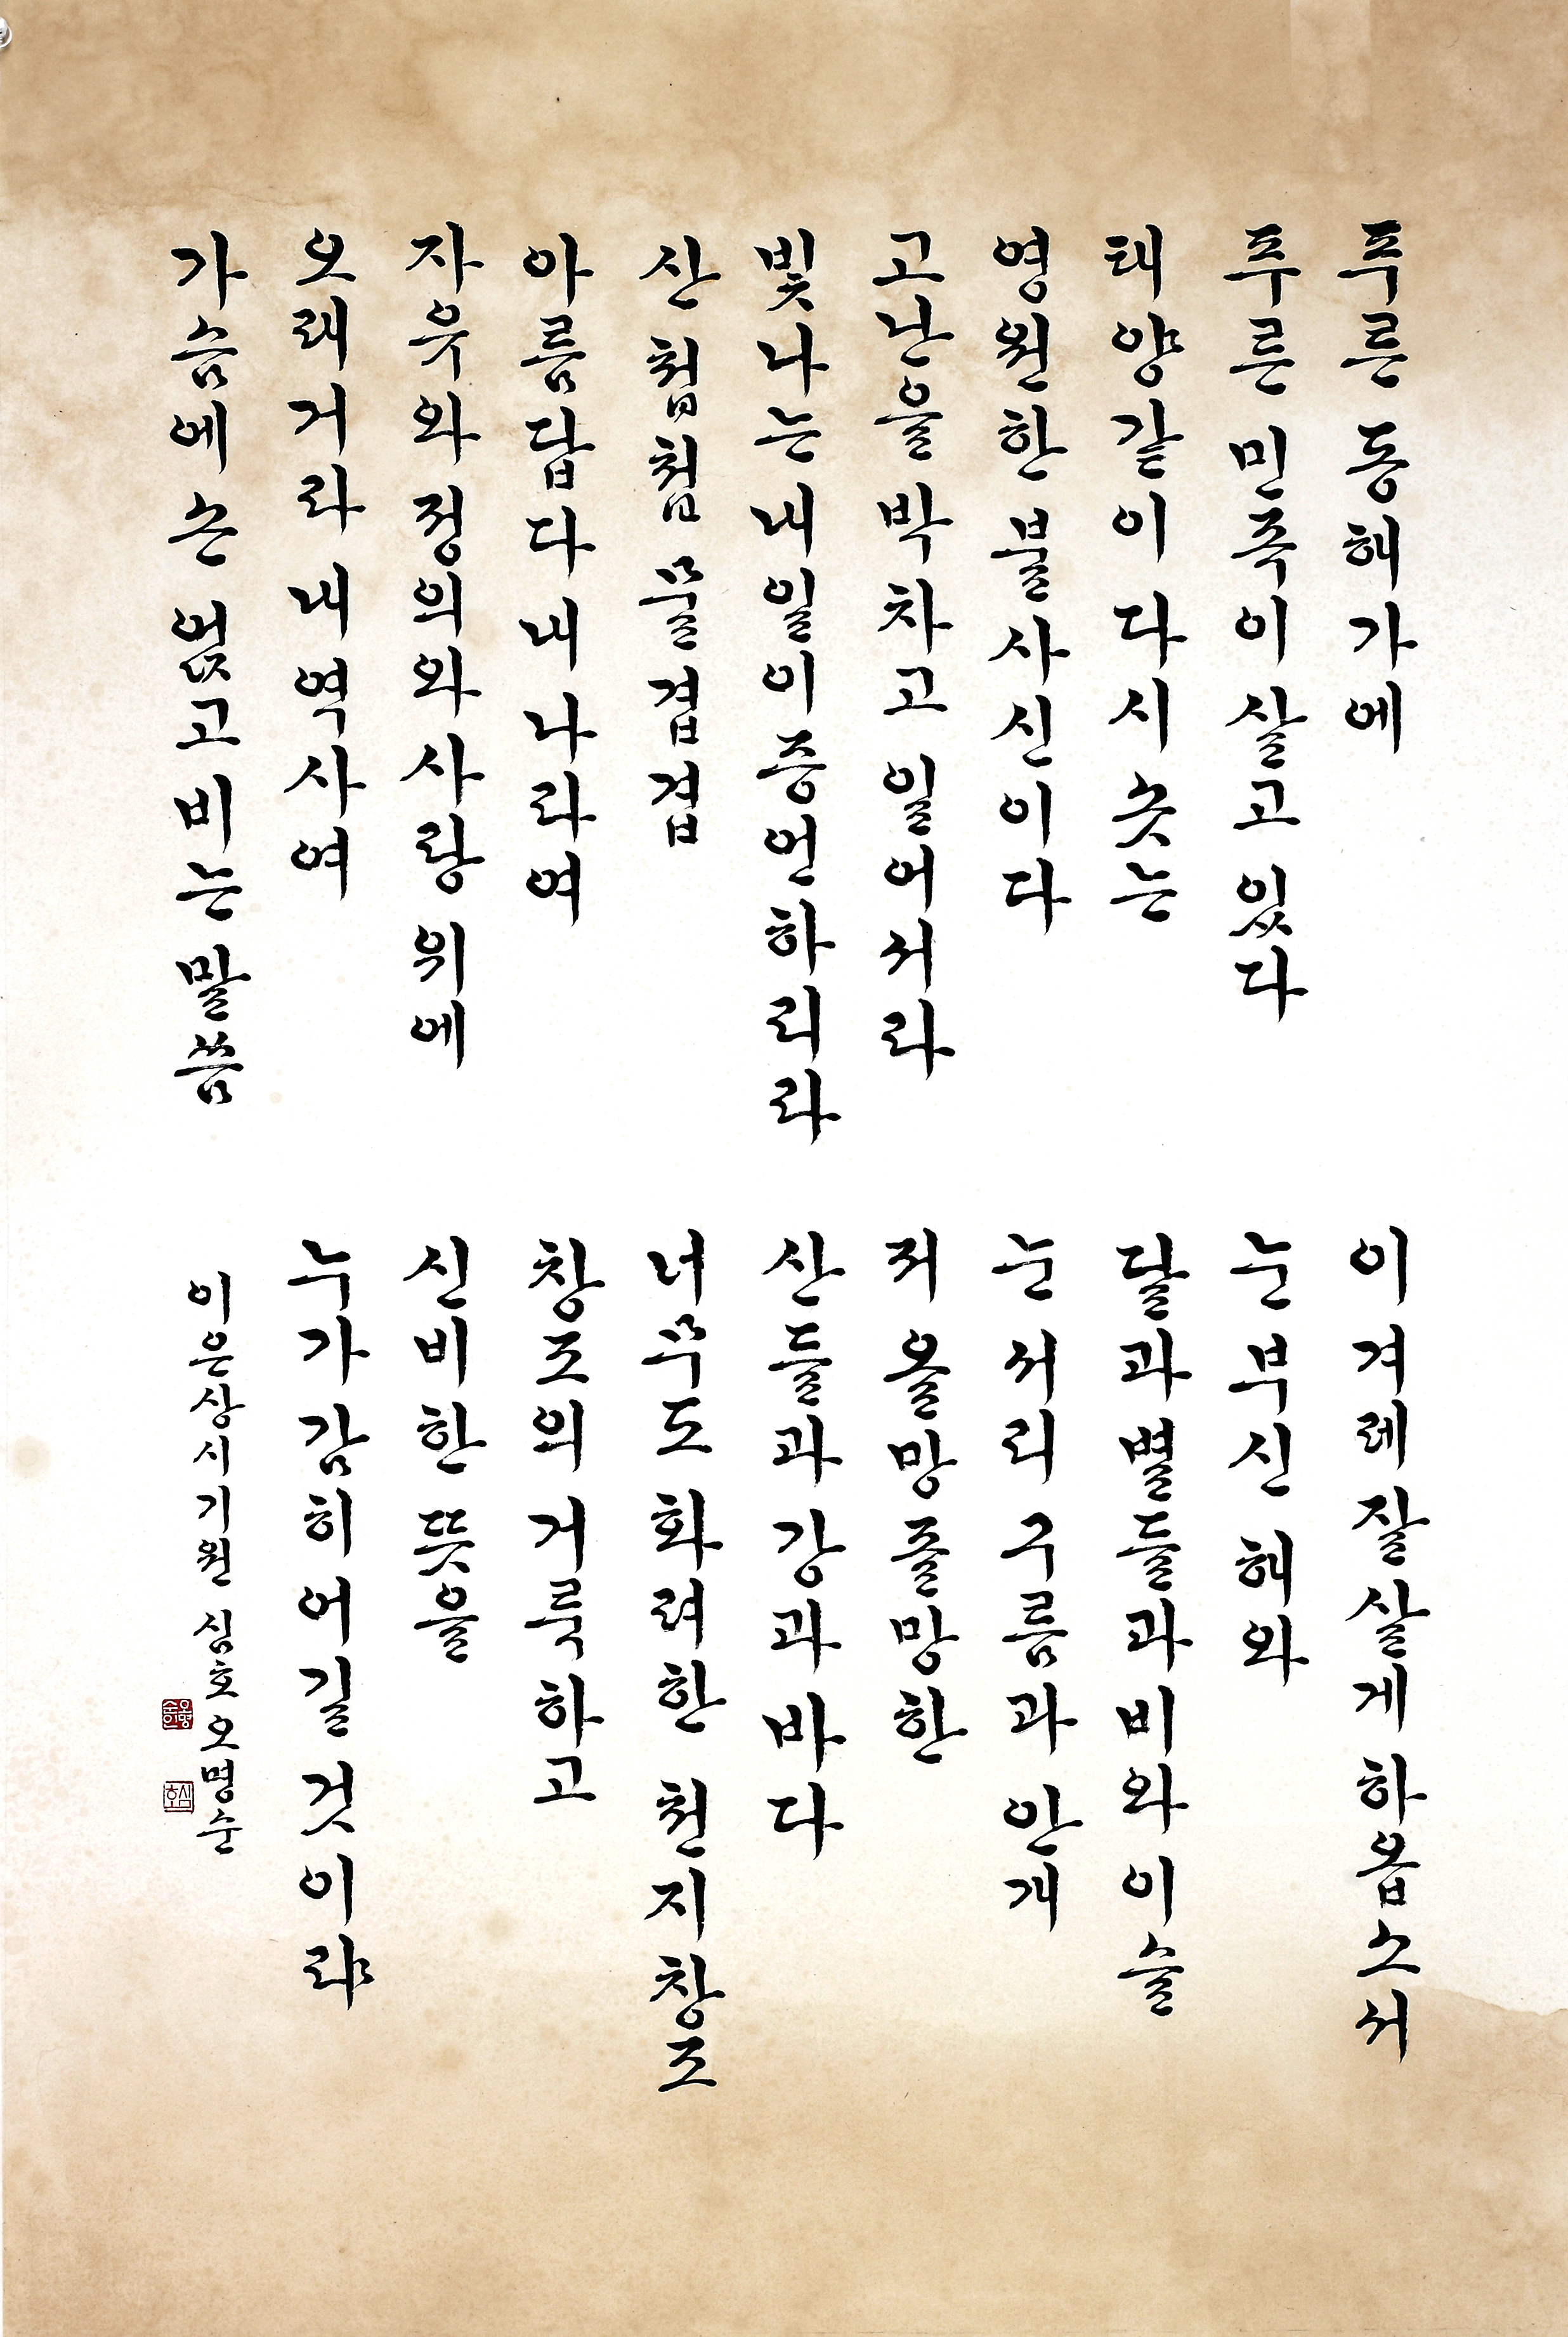 푸른 동해 가에
푸른 민족이 살고 있다
태양같이 다시 솟는
영원한 불사신이다
고난을 박차고 일어서라
빛나는 내일이 증언하리라
산 첩첩 물 겹겹
아름답다 내 나라여
자유와 정의와 사랑 위에
오래거라 내 역사여
가슴에 손 얹고 비는 말씀
이 겨레 잘 살게 하옵소서
눈부신 해와
달과 별들과 비와 이슬
눈 서리 구름과 안개
저 올망졸망한
산들과 강과 바다
너무도 화려한 천지창조
창조의 거룩하고
신비한 뜻을
누가 감히 어길 것이랴
이은상 시 기원 심호 오명순